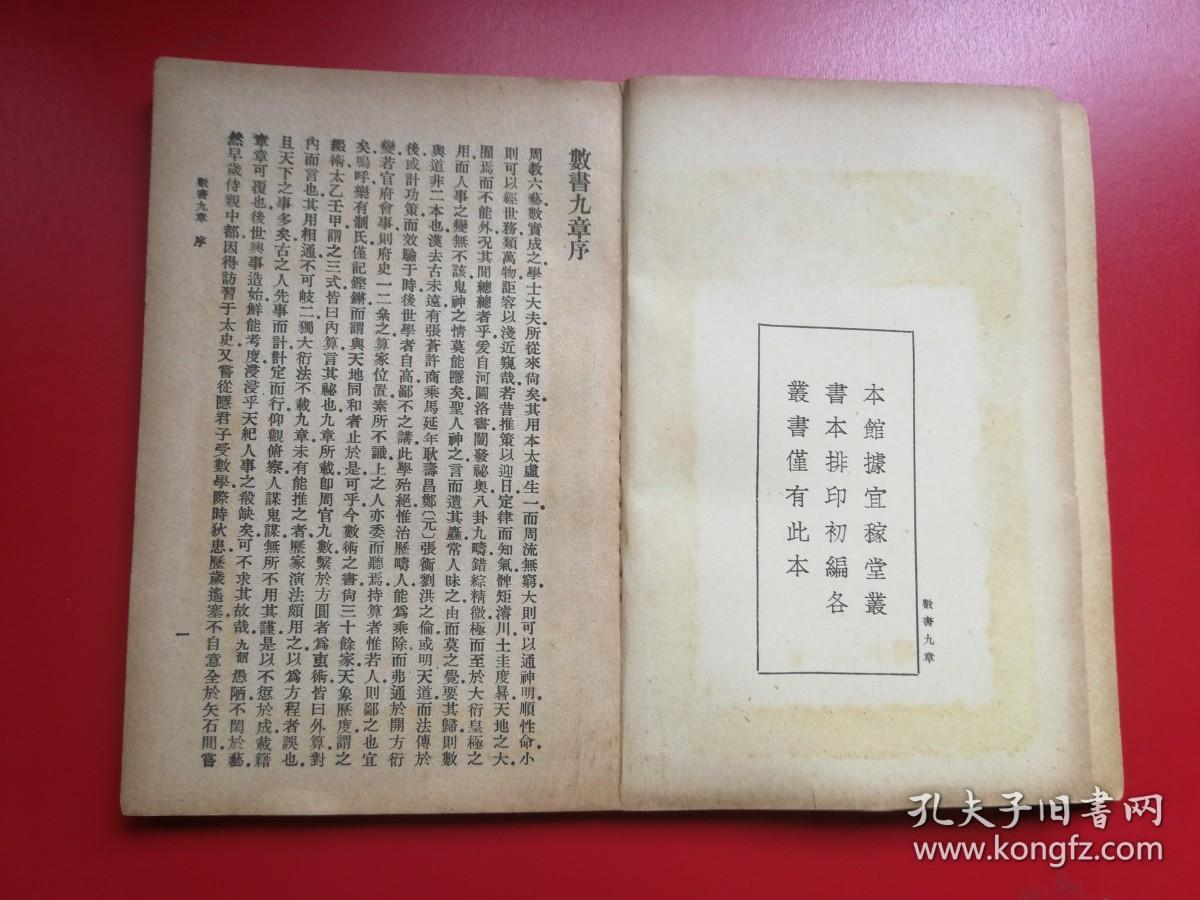 本館據宜稼堂叢
書本排印初編各
叢書僅有此本
數書九章
數書九章序
周敎六藝數實成之學士大夫所從來尙矣其用本太虛生一而周流無窮大則可以通神明順性命小
則可以經世務類萬物詎容以淺近窺哉若昔推策以迎日定律而知氣髀矩濬川土圭度晷天地之大
囿焉而不能外況其間總總者乎爰自河圖洛書闓發祕奧八卦九疇錯綜精微極而至於大衍皇極之
用而人事之變無不該鬼神之情莫能隱矣聖人神之言而遺其麤常人昧之由而莫之覺要其歸則數
與道非二本也漢去古未遠有張蒼許商乘馬延年耿壽昌鄭〔元〕張衡劉洪之倫或明天道而法傳於
後或計功策而效驗于時後世學者自高鄙不之講此學殆絕惟治歷疇人能爲乘除而弗通於開方衍
變若官府會事則府史一二絫之算家位置素所不識上之人亦委而聽焉持算者惟若人則鄙之也宜
矣嗚呼樂有制氏僅記鏗鏘而謂與天地同和者止於是可乎今數術之書尙三十餘家天象歷度謂之
綴術太乙壬甲謂之三式皆曰內算言其祕也九章所載卽周官九數繫於方圓者爲叀術皆曰外算對
內而言也其用相通不可歧二獨大衍法不載九章未有能推之者歷家演法頗用之以爲方程者誤也
且天下之事多矣古之人先事而計計定而行仰觀俯察人謀鬼謀無所不用其謹是以不愆於成載籍
章章可覆也後世興事造始鮮能考度浸浸乎天紀人事之殽缺矣可不求其故哉九韶愚陋不閑於藝
然早歲侍親中都因得訪習于太史又嘗從隱君子受數學際時狄患歷歲遙塞不自意全於矢石間嘗
數書九章 序
一
孔夫子旧书网
www.kongfz.com